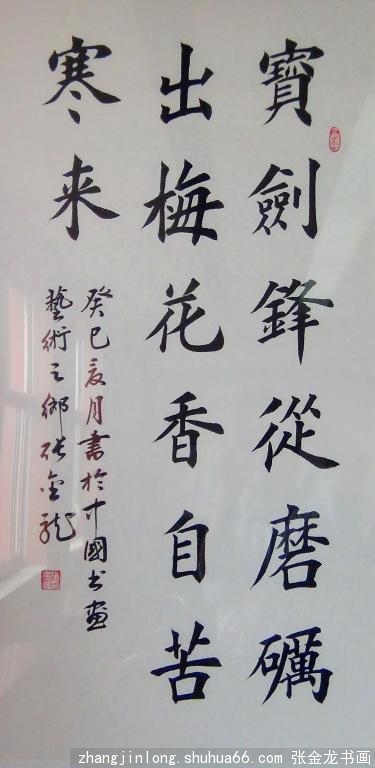 寶劍鋒從磨礪
出梅花香自苦
寒来
癸巳夏月書於中國书画
藝術之鄉張金龍
zhangjinlong.shuhua66.com 张金龙书画